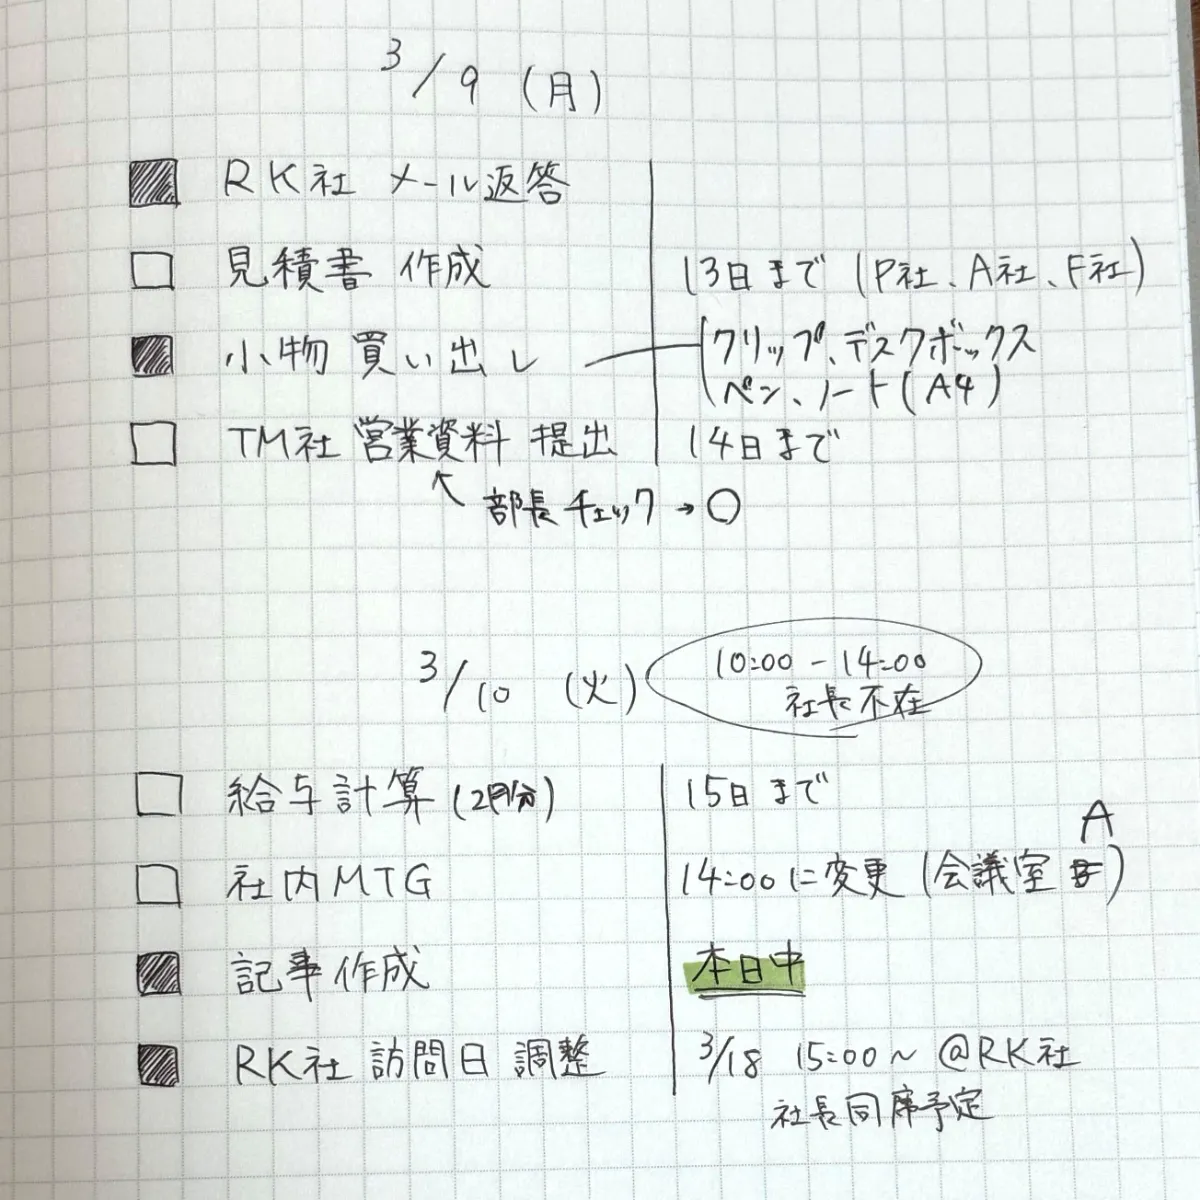 3/9 (月)
■ RK社 メール返答
□ 見積書 作成 13日まで (P社、A社、F社)
■ 小物 買い出し クリップ、デスクボックス
ペン、ノート(A4)
□ TM社 営業資料 提出 14日まで
↖ 部長チェック→○
3/10 (火) 10:00-14:00
社長不在
□ 給与計算 (2月分) 15日まで
□ 社内MTG 14:00に変更 (会議室 A)
■ 記事作成 本日中
■ RK社 訪問日 調整 3/18 15:00~ @RK社
社長同席予定